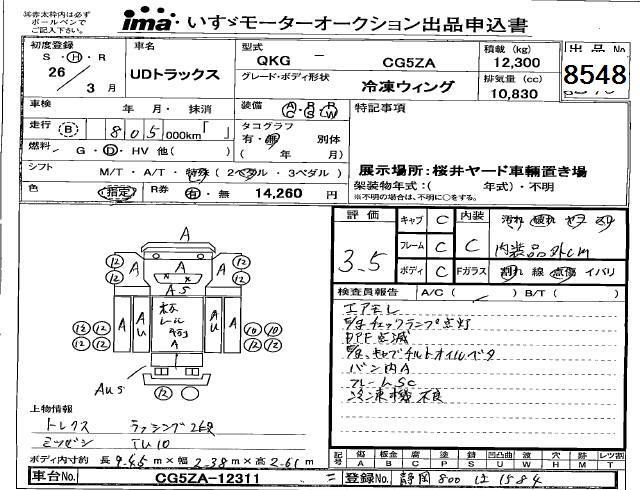 ※赤太枠内は必ず
ボールペンで
ご記入下さい。
ima いすゞモーターオークション出品申込書
初度登録 車名 型式 QKG － CG5ZA 積載 (kg) 12,300 出品No
S・H・R
26 3月 UDトラックス グレード・ボディ形状 冷凍ウィング 排気量 (cc) 10,830 8548
車検 年 月・ 抹消 装備 AC・PS・PW 特記事項
走行 B 805,000km「 」 タコグラフ
有・無 別体
燃料 G・D・HV 他( ) ( 年 月)
展示場所：桜井ヤード車輛置き場
シフト M/T・A/T・特殊 ( 2ペダル・3ペダル ) 架装物年式：( 年式)・不明
色 指定 R券 有・無 14,260 円 ※不明の場合は、不明に○をする。
評価 キャブ C 内装 汚れ 破れ ヤケ スリ
3.5 フレーム C C 内装品外cm
ボディ C Fガラス 割れ 線 点傷 イバリ
検査員報告 A/C ( ) B/T ( )
エアモレ
チェックランプ点灯
DPF点滅
キャブチルトオイルベタ
バン内A
フレームSC
冷凍機不良
A
12 12
A
A
12 12
AS
12 12 A AU AU A 10 10
12 12 12 12
木
レール
AUS
12
上物情報
トレクス ラッシング2段
ミツビシ TU10
ボディ内寸約 長 9.45 m × 幅 2.38 m × 高 2.61 m
記号 傷 A 板金 B 腐 C 塗 P 錆 S 凹凸曲 U 波 W 穴 H 跡 M レツ割 T
車台No. CG5ZA-12311 = 登録No. 静岡 800 は 1584